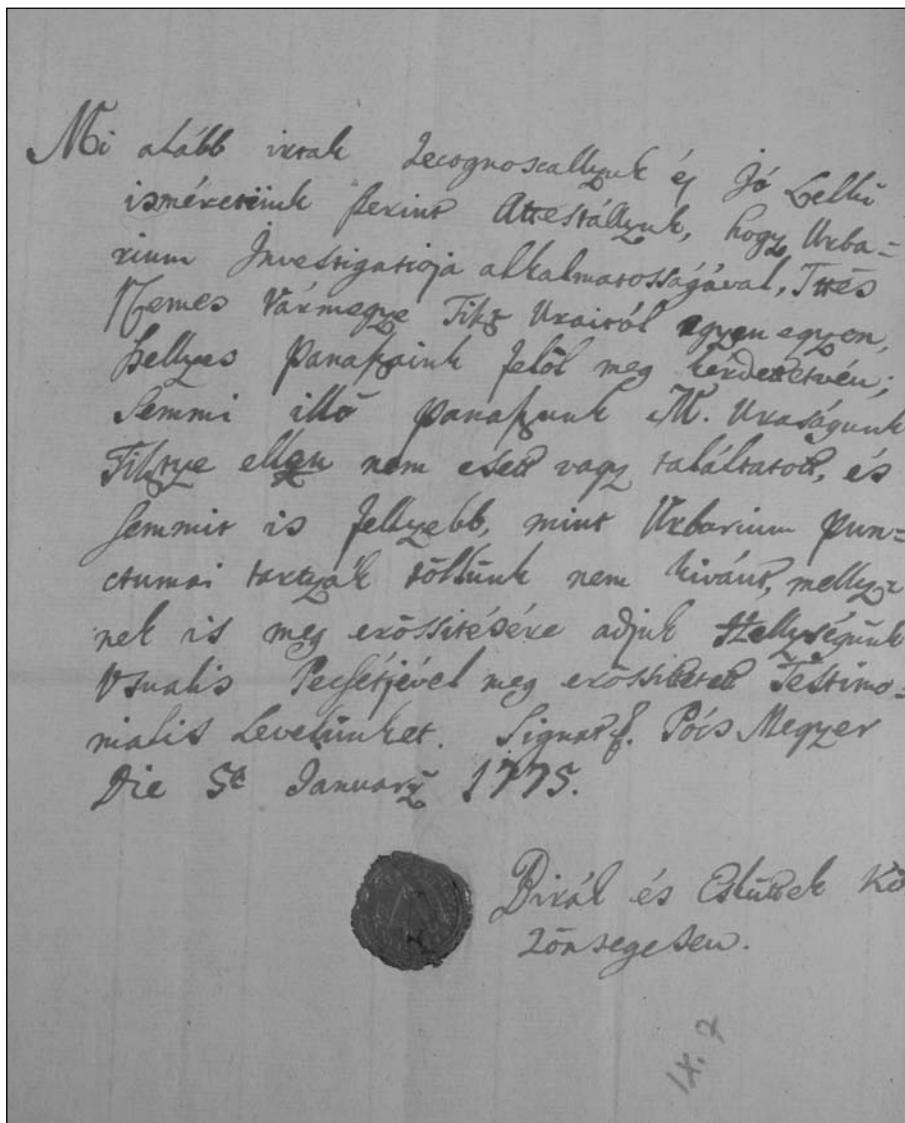 Mi alább irtak Recognoscallyuk és Jó Lelkü
isméretünk szerint Attestállyuk, hogy Urba=
rium Investigatioja alkalmatosságával, Ttes
Nemes Vármegye Tiszt Uraitól egyen egyen,
hellyes panaszaink felöl meg kérdettetvén;
Semmi illö panaszunk M. Uraságunk
Tisztye ellen nem esett vagy találtatott, és
semmit is fellyebb, mint Urbarium pun=
ctumai tartyák töllünk nem kivánt, melly=
nek is meg erössitésére adjuk Hellységünk
Usualis Pecsétjével meg erössitetett Testimo=
nialis Levelünket. Signat f. Pócs Megyer
Die 5a Januarÿ 1775.
Birák és Esküttek Kö
zönsegesen.
IX. 7